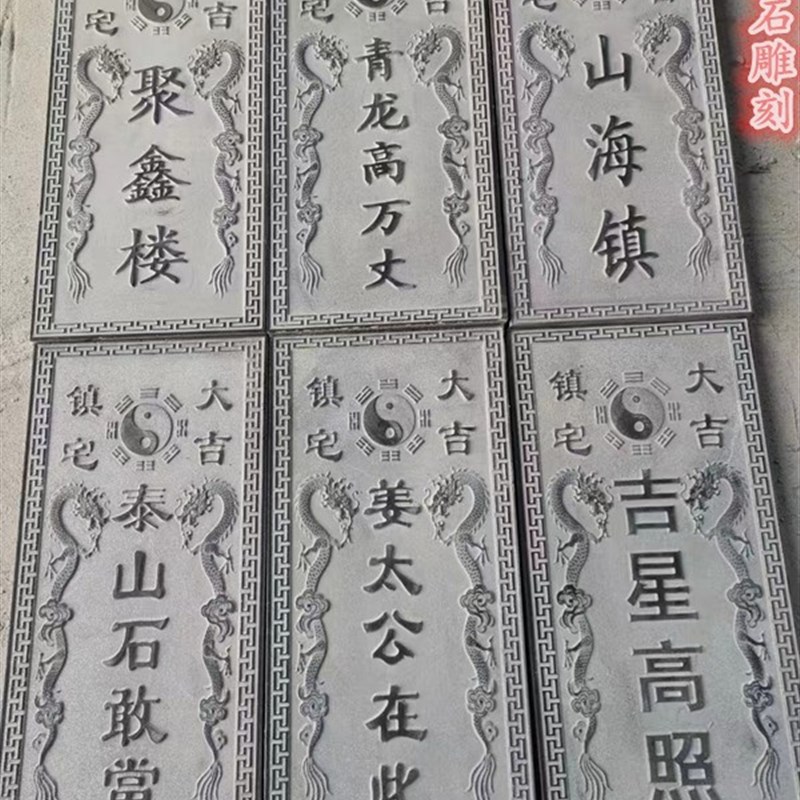 宅 吉
聚鑫楼
青龙高万丈
宅 吉
山海镇
石雕刻
镇宅 大吉
泰山石敢當
镇宅 大吉
姜太公在此
镇宅 大吉
吉星高照